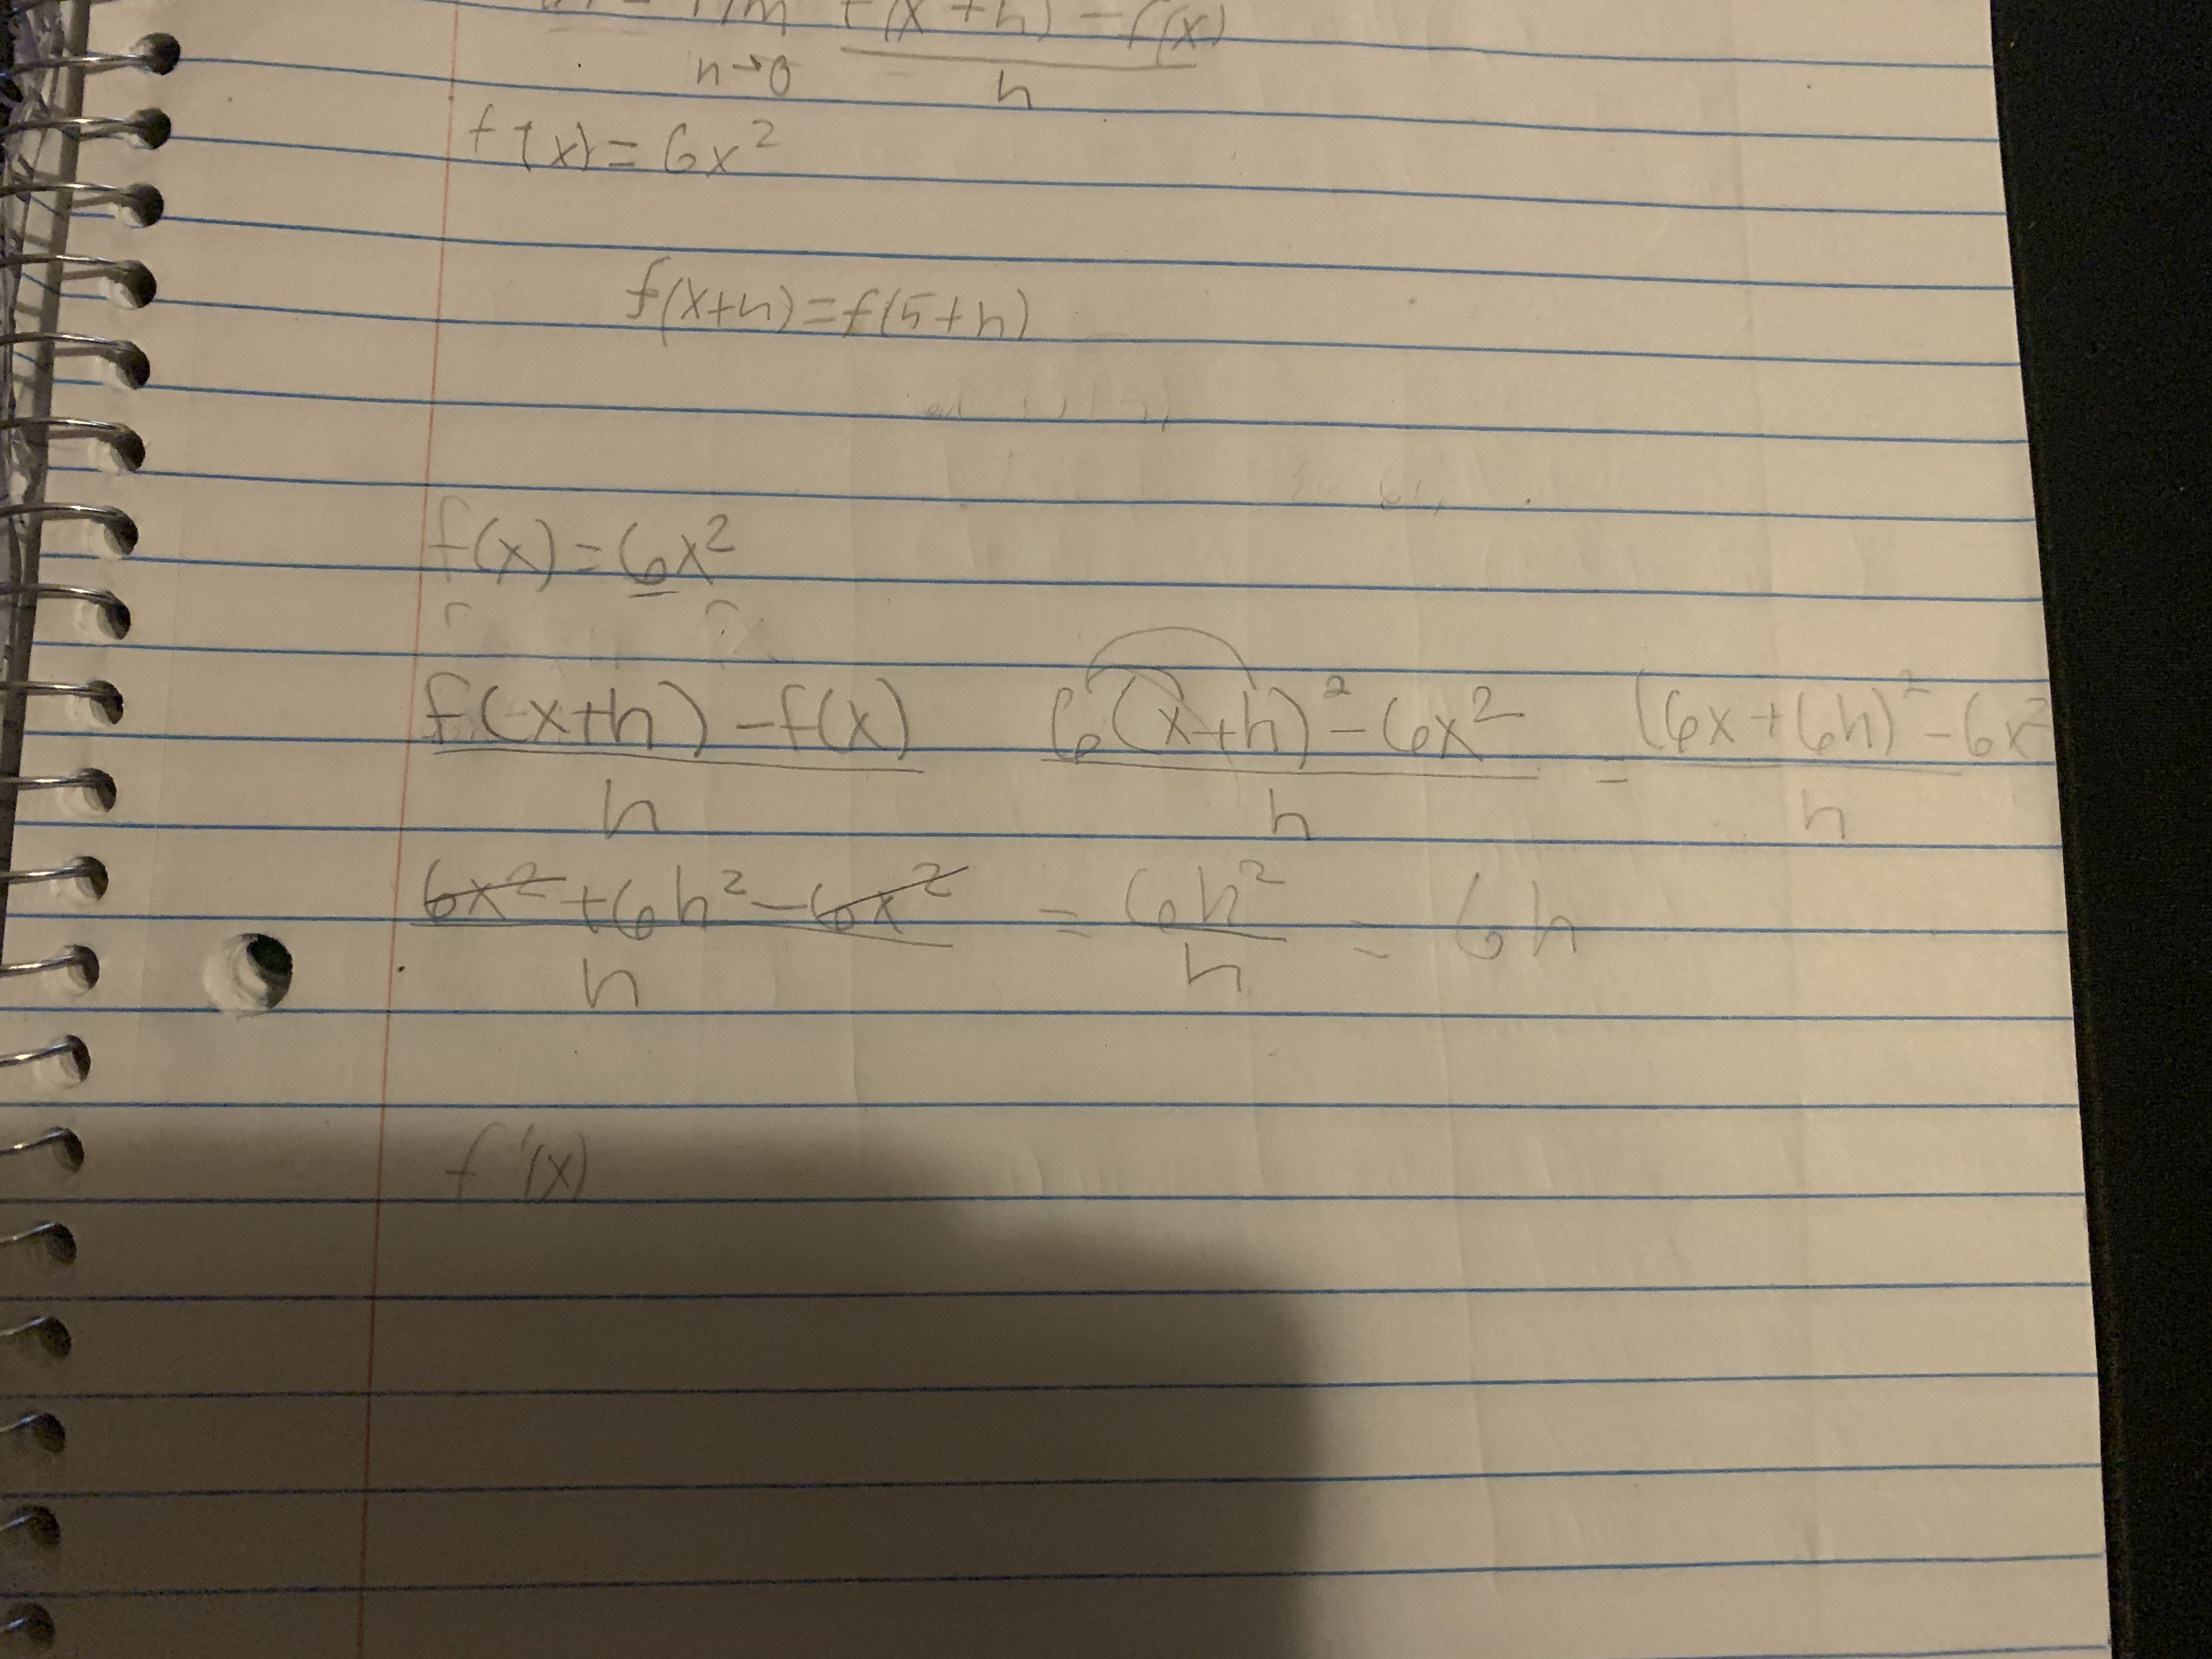 lim f(x+h)-f(x)
h→0 h
f(x)=6x²
f(x+h)=f(5+h)
f(x)=6x²
f(x+h)-f(x) 6(x+h)²-6x² = (6x+6h)²-6x²
h h h
6x²+6h²-6x² = 6h² = 6h
h h
f'(x)